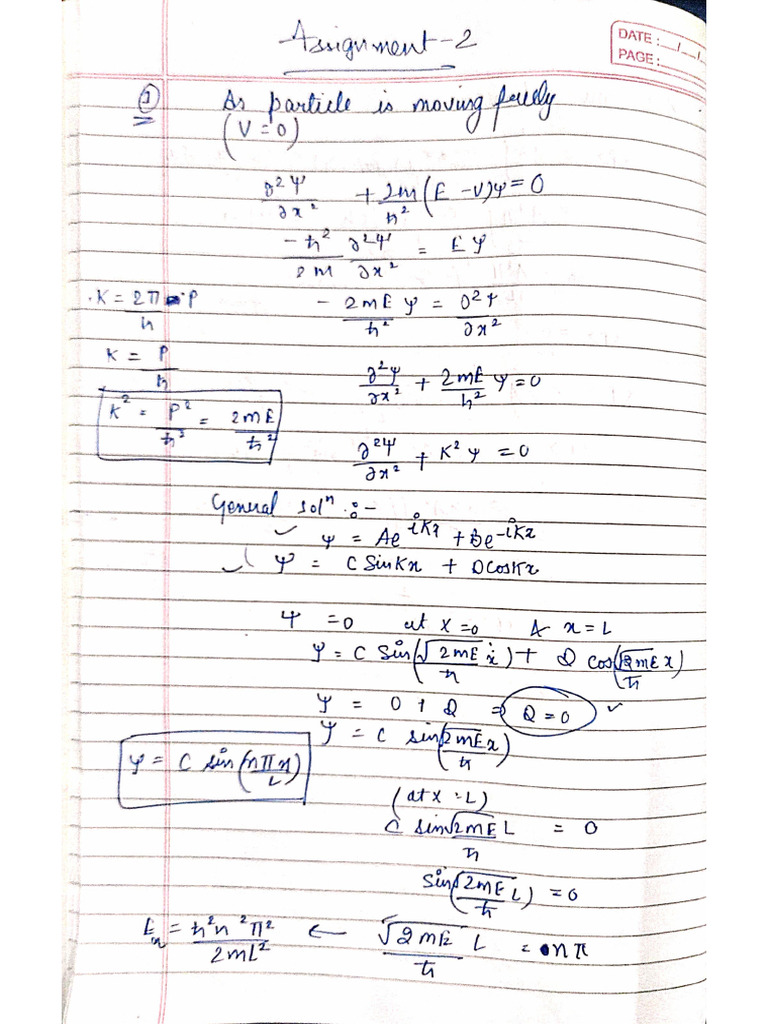 Assignment-2
DATE : __/__/__
PAGE : ____
① As particle is moving freely
(V=0)
∂²Ψ/∂x² + 2m/ħ² (E - V)Ψ = 0
-ħ²/2m ∂²Ψ/∂x² = EΨ
K = 2π P/h
- 2mE/ħ² Ψ = ∂²Ψ/∂x²
K = P/ħ
∂²Ψ/∂x² + 2mE/ħ² Ψ = 0
K² = P²/ħ² = 2mE/ħ²
∂²Ψ/∂x² + K²Ψ = 0
General solⁿ :-
✓ Ψ = Ae^iKx + Be^-iKx
✓ Ψ = C SinKx + DcosKx
Ψ = 0 at x = 0 & x = L
Ψ = C Sin(√2mE x/ħ) + D cos(√2mE x/ħ)
Ψ = 0 + D ⇒ D = 0 ✓
Ψ = C sin(√2mE x/ħ)
Ψ = C sin(nπx/L)
(at x = L)
C sin √2mE L/ħ = 0
Sin(√2mE/ħ L) = 0
Eₙ = ħ²n²π²/2mL² ← √2mE/ħ L = nπ